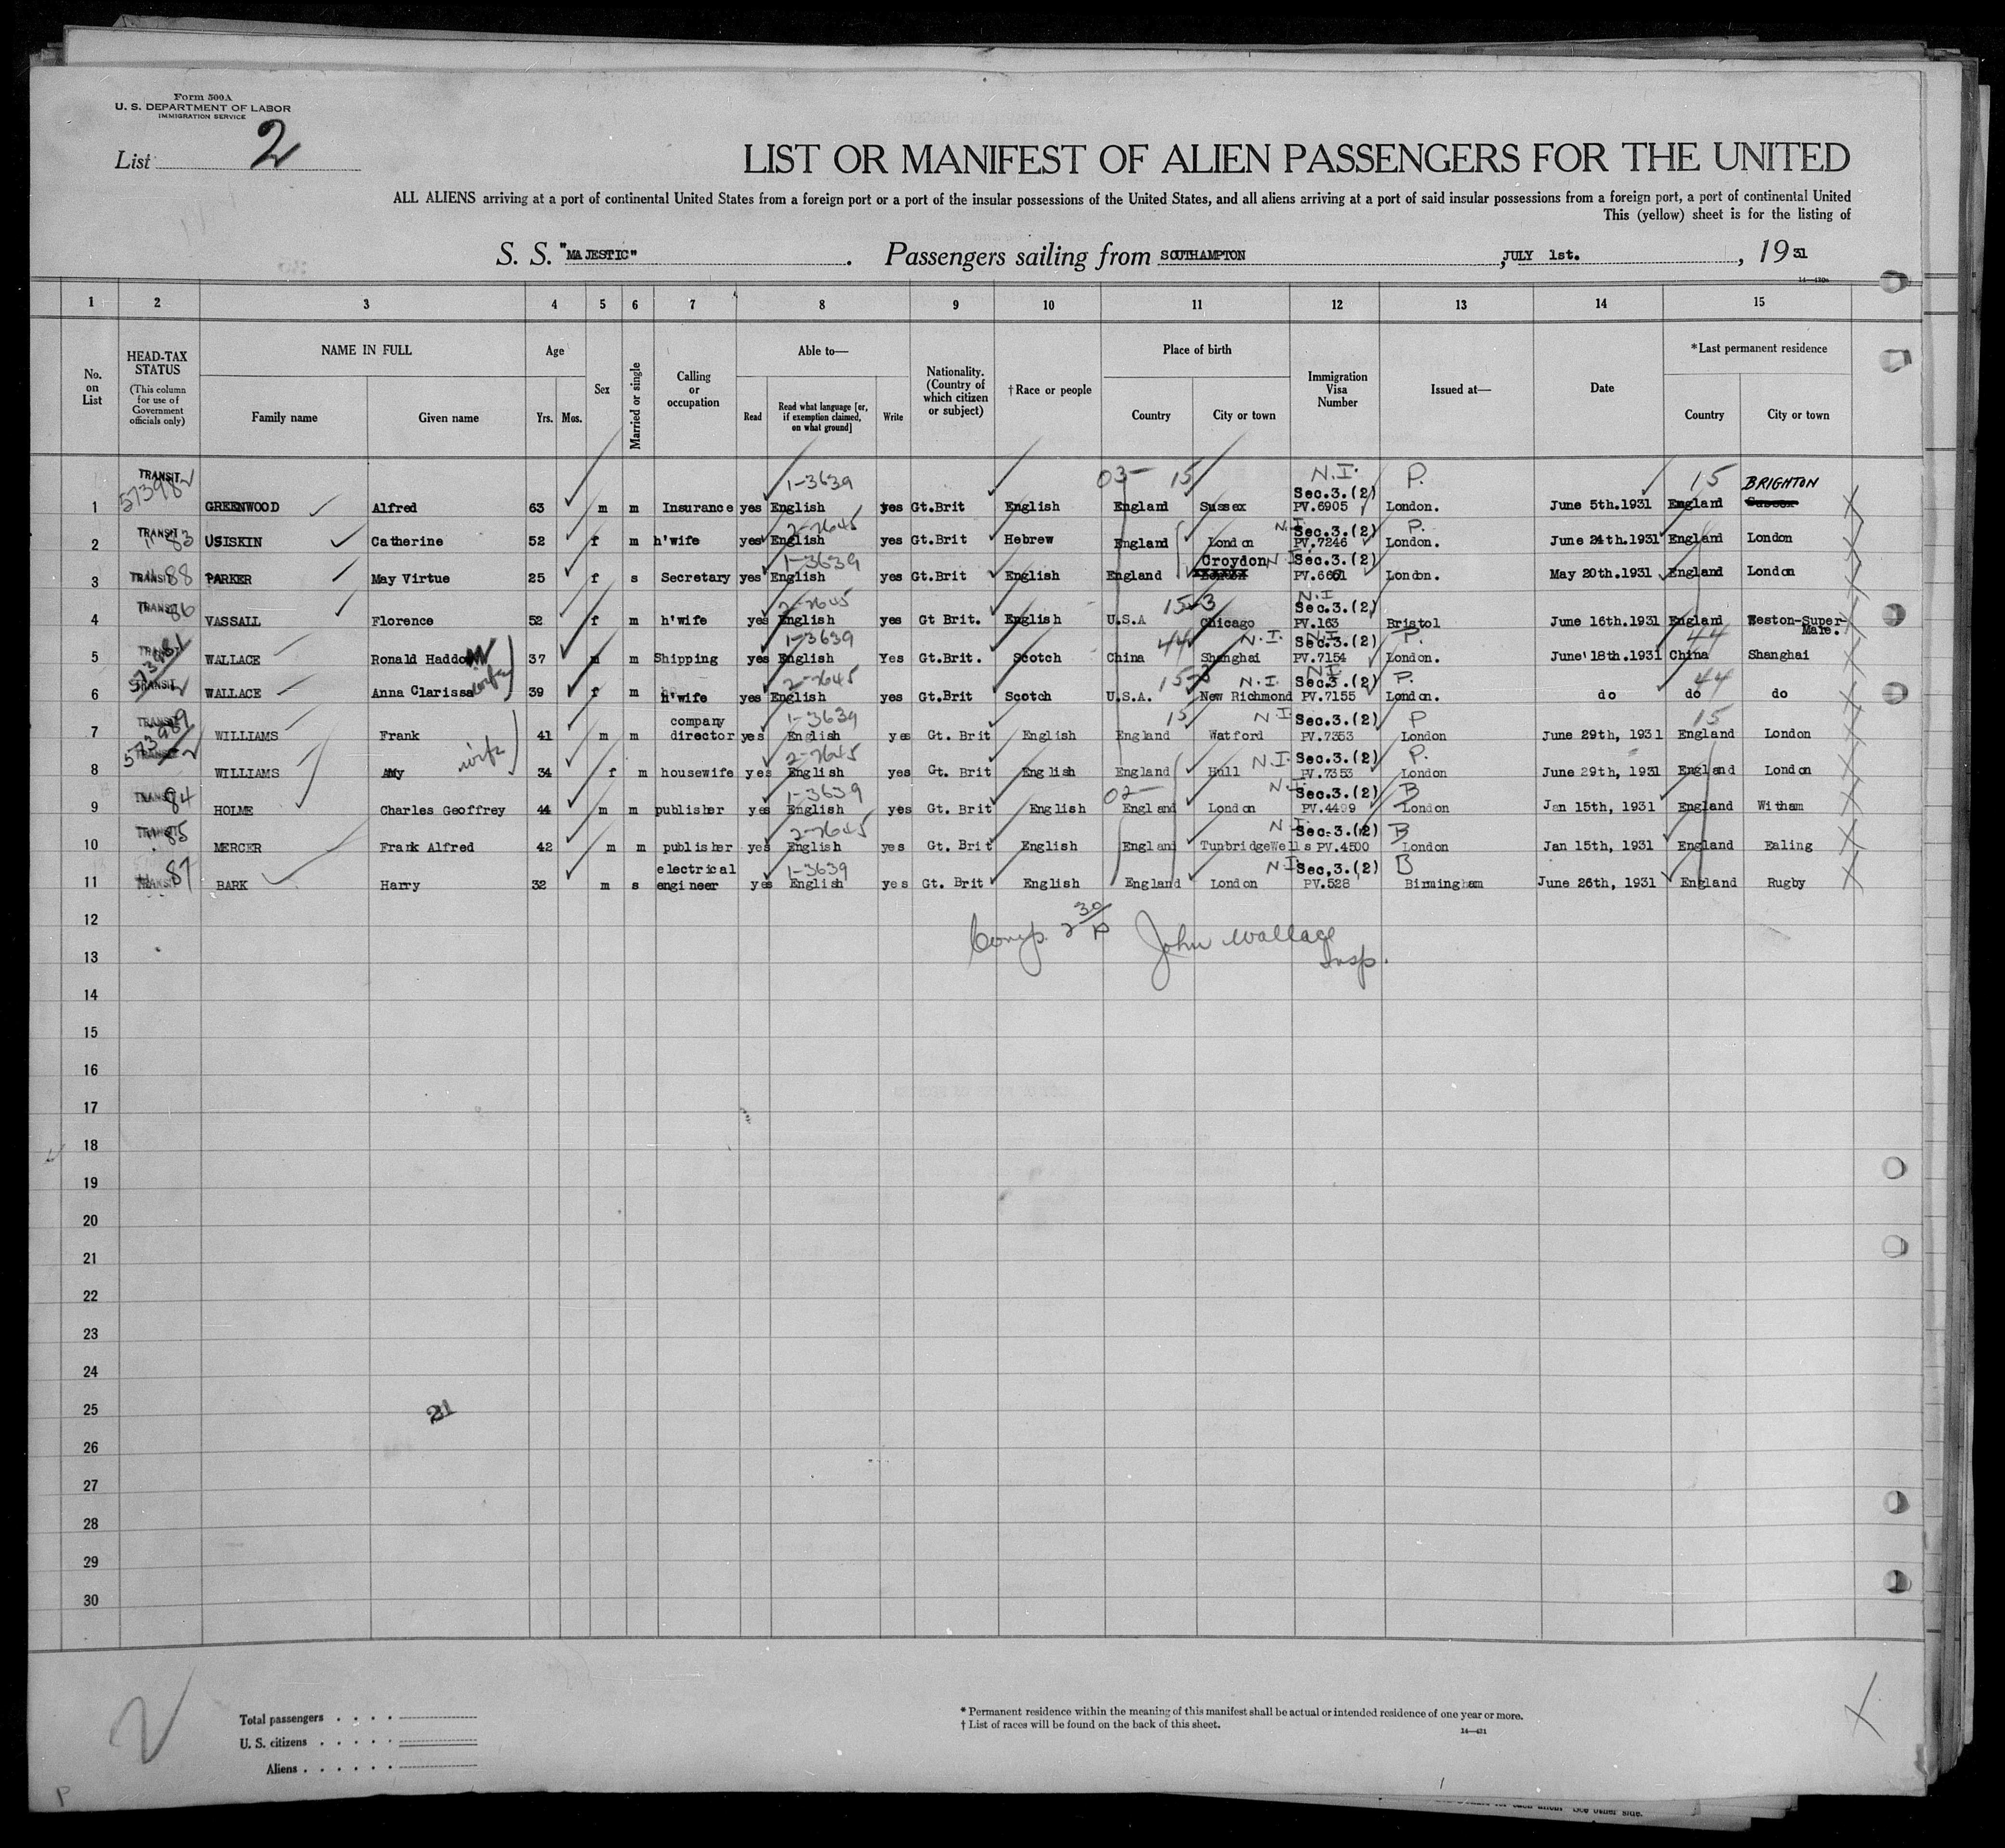 Form 500A
U. S. DEPARTMENT OF LABOR
IMMIGRATION SERVICE
List 2
LIST OR MANIFEST OF ALIEN PASSENGERS FOR THE UNITED
ALL ALIENS arriving at a port of continental United States from a foreign port or a port of the insular possessions of the United States, and all aliens arriving at a port of said insular possessions from a foreign port, a port of continental United
This (yellow) sheet is for the listing of
S. S. "MAJESTIC" . Passengers sailing from SOUTHAMPTON , JULY 1st. , 19 31
1 2 3 4 5 6 7 8 9 10 11 12 13 14 15
No. on List
HEAD-TAX STATUS (This column for use of Government officials only)
NAME IN FULL Family name Given name
Age Yrs. Mos.
Sex
Married or single
Calling or occupation
Able to— Read Read what language [or, if exemption claimed, on what ground] Write
Nationality. (Country of which citizen or subject)
†Race or people
Place of birth Country City or town
Immigration Visa Number
Issued at—
Date
*Last permanent residence Country City or town
TRANSIT 1-3639 03- 15 N.I. P. 15 BRIGHTON
573982 Sec.3.(2)
1 GREENWOOD Alfred 63 m m Insurance yes English yes Gt.Brit English England Sussex PV.6905 London. June 5th.1931 England Sussex
TRANSIT 83 2-2645 N.I. Sec.3.(2) P.
2 USISKIN Catherine 52 f m h'wife yes English yes Gt.Brit Hebrew England London PV.7246 London. June 24th.1931 England London
1-3639 Croydon N.I. Sec.3.(2)
3 TRANSIT 88 PARKER May Virtue 25 f s Secretary yes English yes Gt.Brit English England PV.6661 London. May 20th.1931 England London
TRANSIT 86 2-2645 15-3 N.I Sec.3.(2)
4 VASSALL Florence 52 f m h'wife yes English yes Gt Brit. English U.S.A Chicago PV.163 Bristol June 16th.1931 England Weston-Super-Mare.
TRANSIT 573981 1-3639 44 N.I. Sec.3.(2) P. 44
5 WALLACE Ronald Haddow 37 m m Shipping yes English Yes Gt.Brit. Scotch China Shanghai PV.7154 London. June 18th.1931 China Shanghai
TRANSIT wife 2-2645 N.I. Sec.3.(2) P. 44
6 WALLACE Anna Clarissa 39 f m h'wife yes English yes Gt.Brit Scotch U.S.A. New Richmond PV.7155 London. do do do
TRANSIT 573989 company 1-3639 15 N.I Sec.3.(2) P 15
7 WILLIAMS Frank 41 m m director yes English yes Gt. Brit English England Watford PV.7353 London June 29th, 1931 England London
TRANSIT wife 2-2645 N.I. Sec.3.(2) P.
8 WILLIAMS Amy 34 f m housewife yes English yes Gt. Brit English England Hull PV.7353 London June 29th, 1931 England London
TRANSIT 84 1-3639 02- N.I. Sec.3.(2) B
9 HOLME Charles Geoffrey 44 m m publisher yes English yes Gt. Brit English England London PV.4499 London Jan 15th, 1931 England Witham
TRANSIT 85 2-2645 N.I. Sec.3.(2) B
10 MERCER Frank Alfred 42 m m publisher yes English yes Gt. Brit English England TunbridgeWells PV.4500 London Jan 15th, 1931 England Ealing
TRANSIT 87 electrical 1-3639 N.I Sec,3.(2) B
11 BARK Harry 32 m s engineer yes English yes Gt. Brit English England London PV.528 Birmingham June 26th, 1931 England Rugby
12
Comp. 2 30/P John Wallace
13 Insp.
14
15
16
17
18
19
20
21
22
23
24
25 21
26
27
28
29
30
2
Total passengers . . . .
U. S. citizens . . . . .
Aliens . . . . . .
* Permanent residence within the meaning of this manifest shall be actual or intended residence of one year or more.
† List of races will be found on the back of this sheet.
14—421
P
See other side.